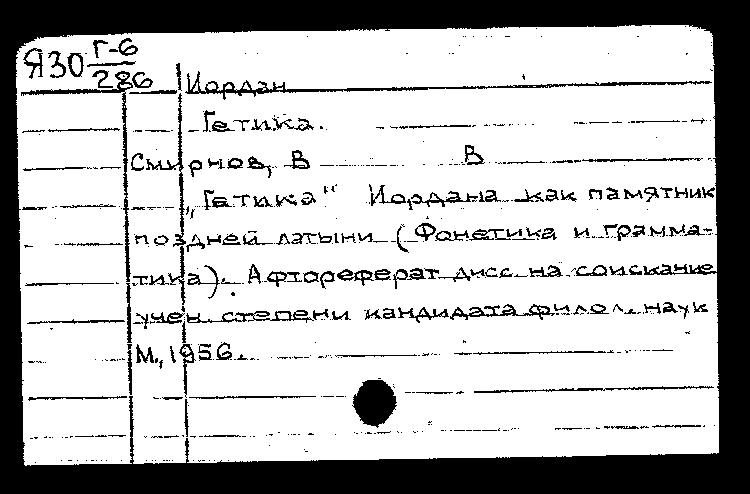 Я30 Г-6
286
Иордан
Гетика.
Смирнов, В В
„Гетика“ Иордана как памятник
поздней латыни (Фонетика и грамма-
тика). Автореферат дисс. на соискание
учен. степени кандидата филол. наук
М., 1956.